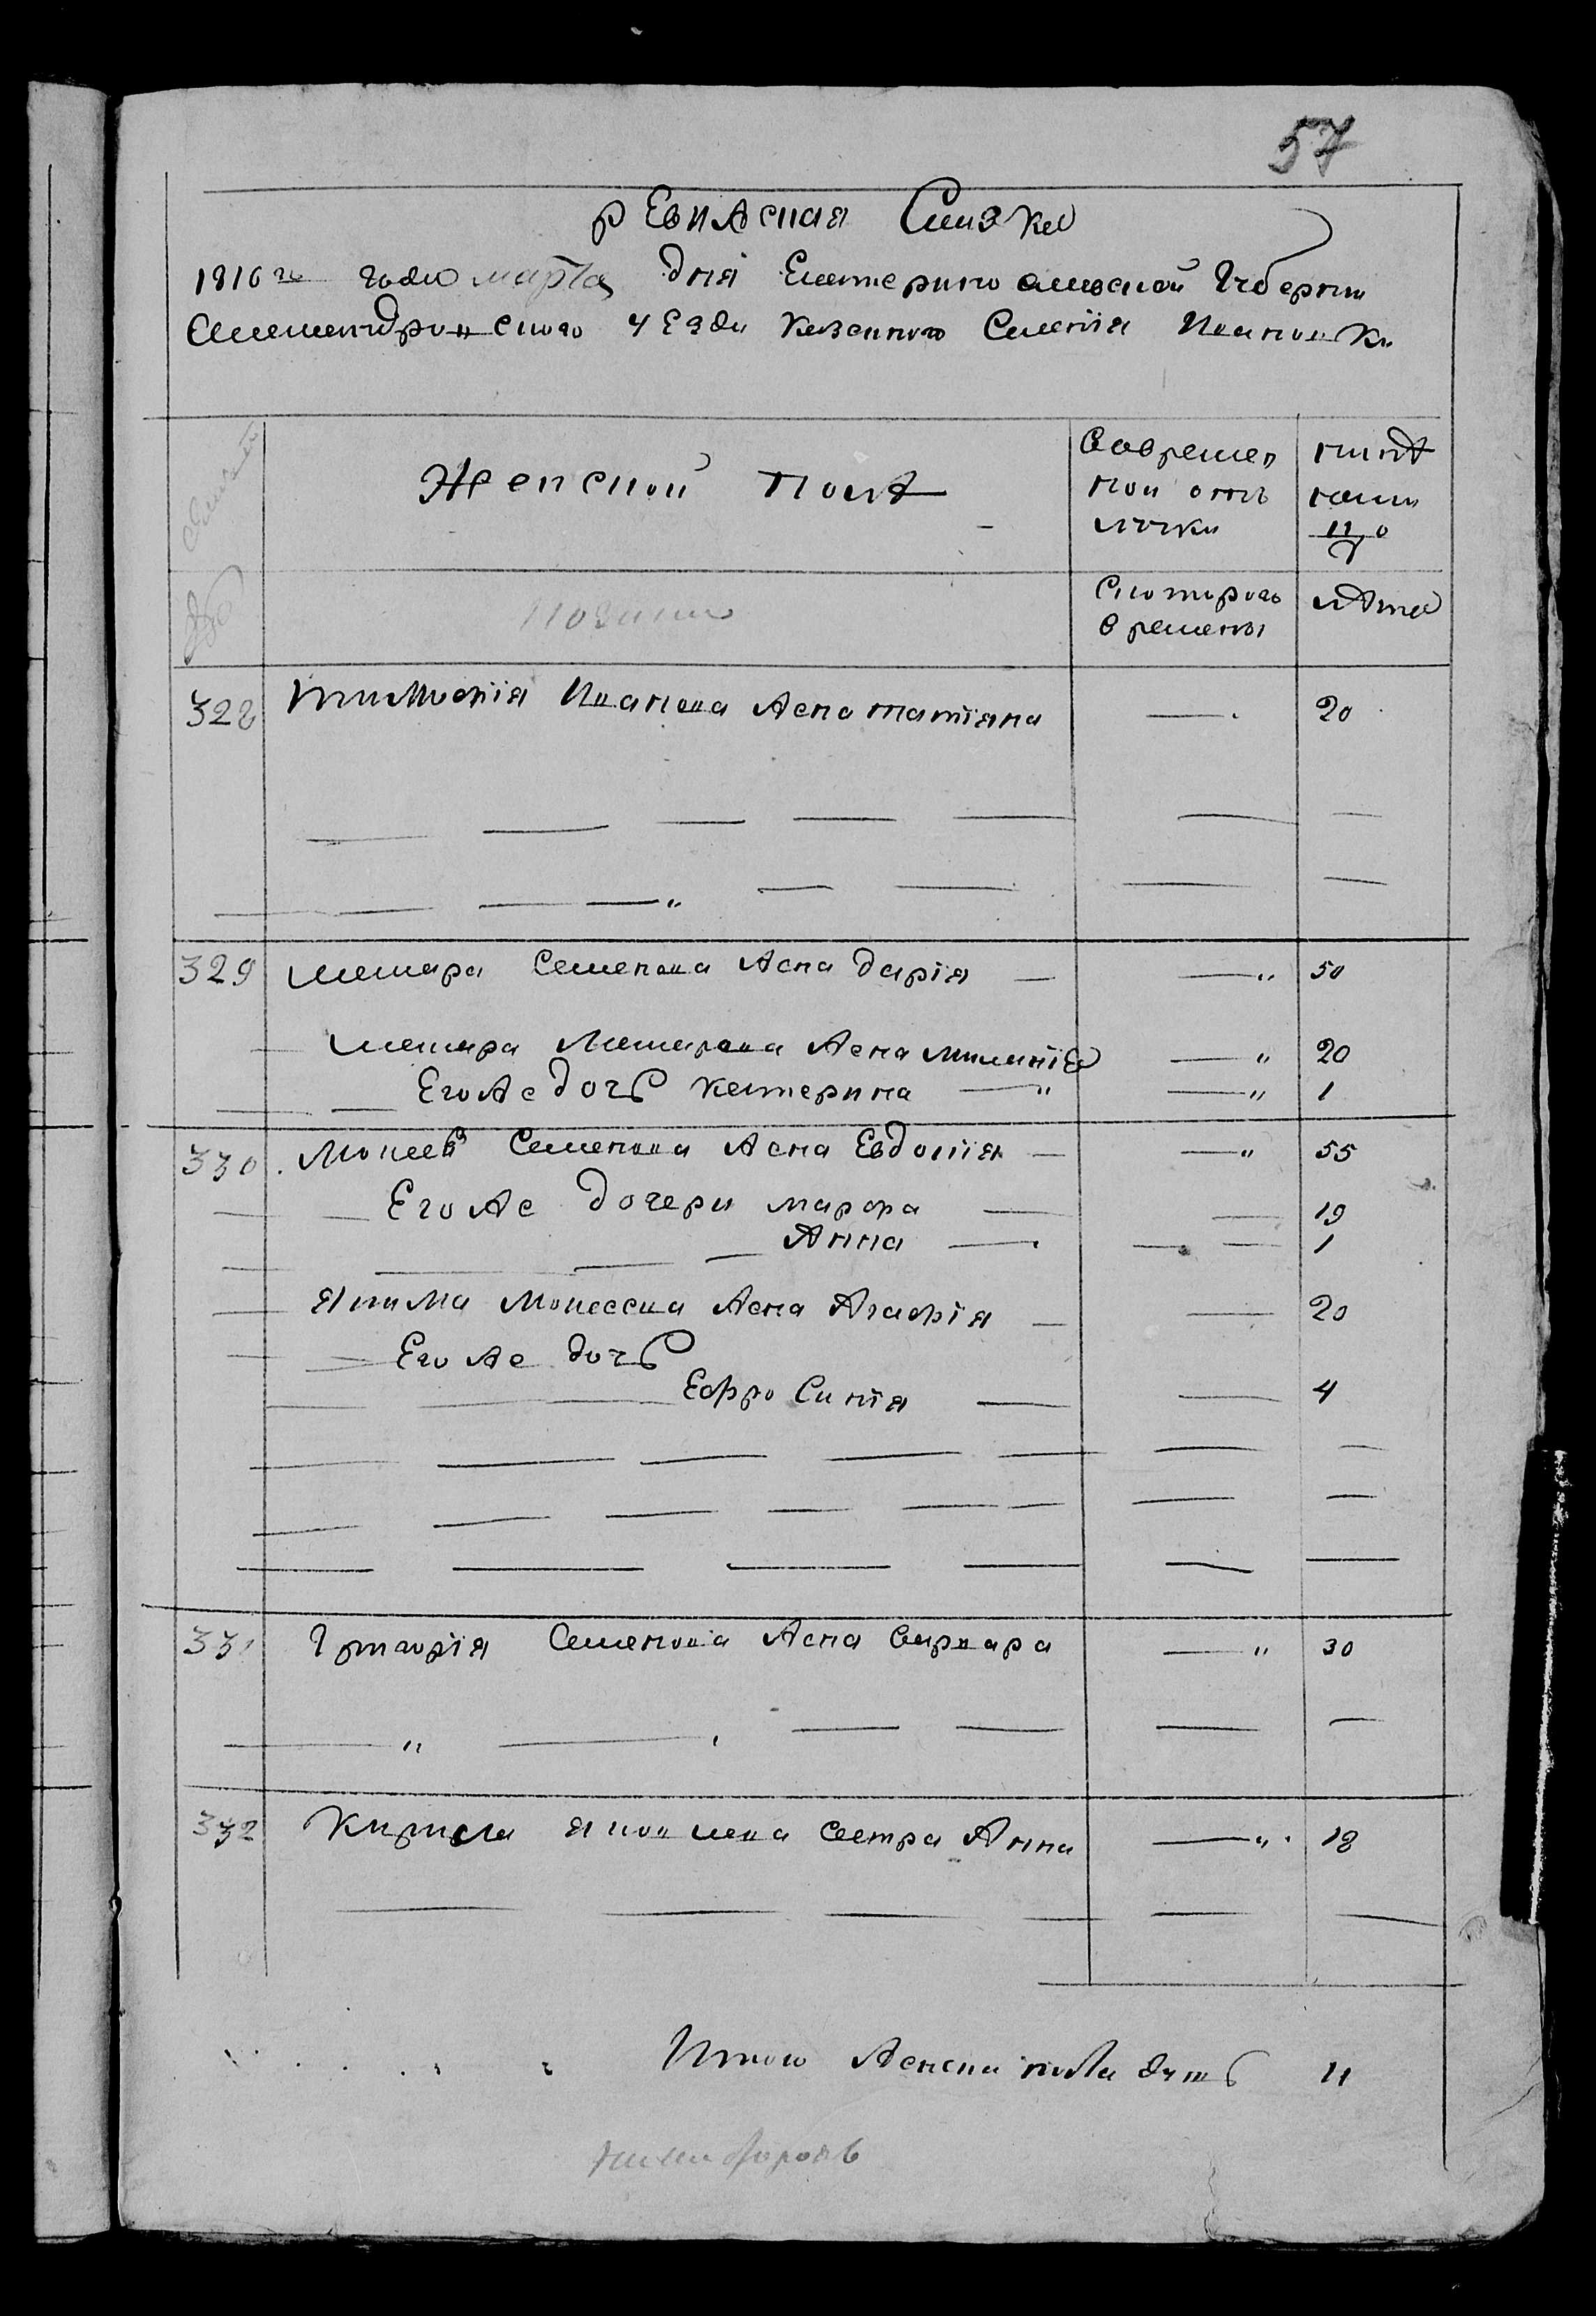 57
ревижская Скизка
1816го года марта дня Екатеринославской Губернии
Александровского уезда казенного Селения Покровки
Женской полъ
вовремен
ной отл
лучки
нинѣ
нали
цо
Скоторого
времены
лѣта
328 Тимофѣя Иванова жена татіяна 20
329 макара Семенова жена дарія 50
макара Макарова жена 20
Его же дочь катерина 1
330 Мокеев Семенова жена Евдокія 55
Его же дочери марфа 19
Анна 1
якима Мокеева жена Агафія 20
Его же дочь
Ефросинія 4
331 Григорія Семенова жена варвара 30
332 Кирила яковлева сестра Анна 18
Итого женска пола душь 11